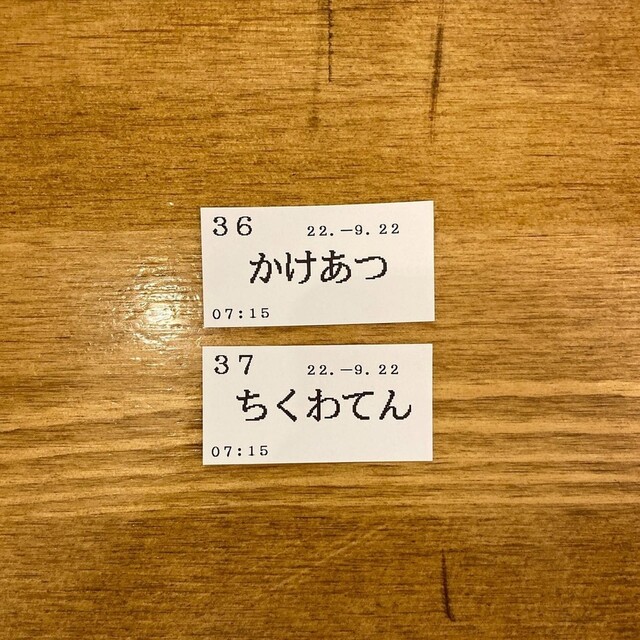 36 22.-9.22
かけあつ
07:15
37 22.-9.22
ちくわてん
07:15